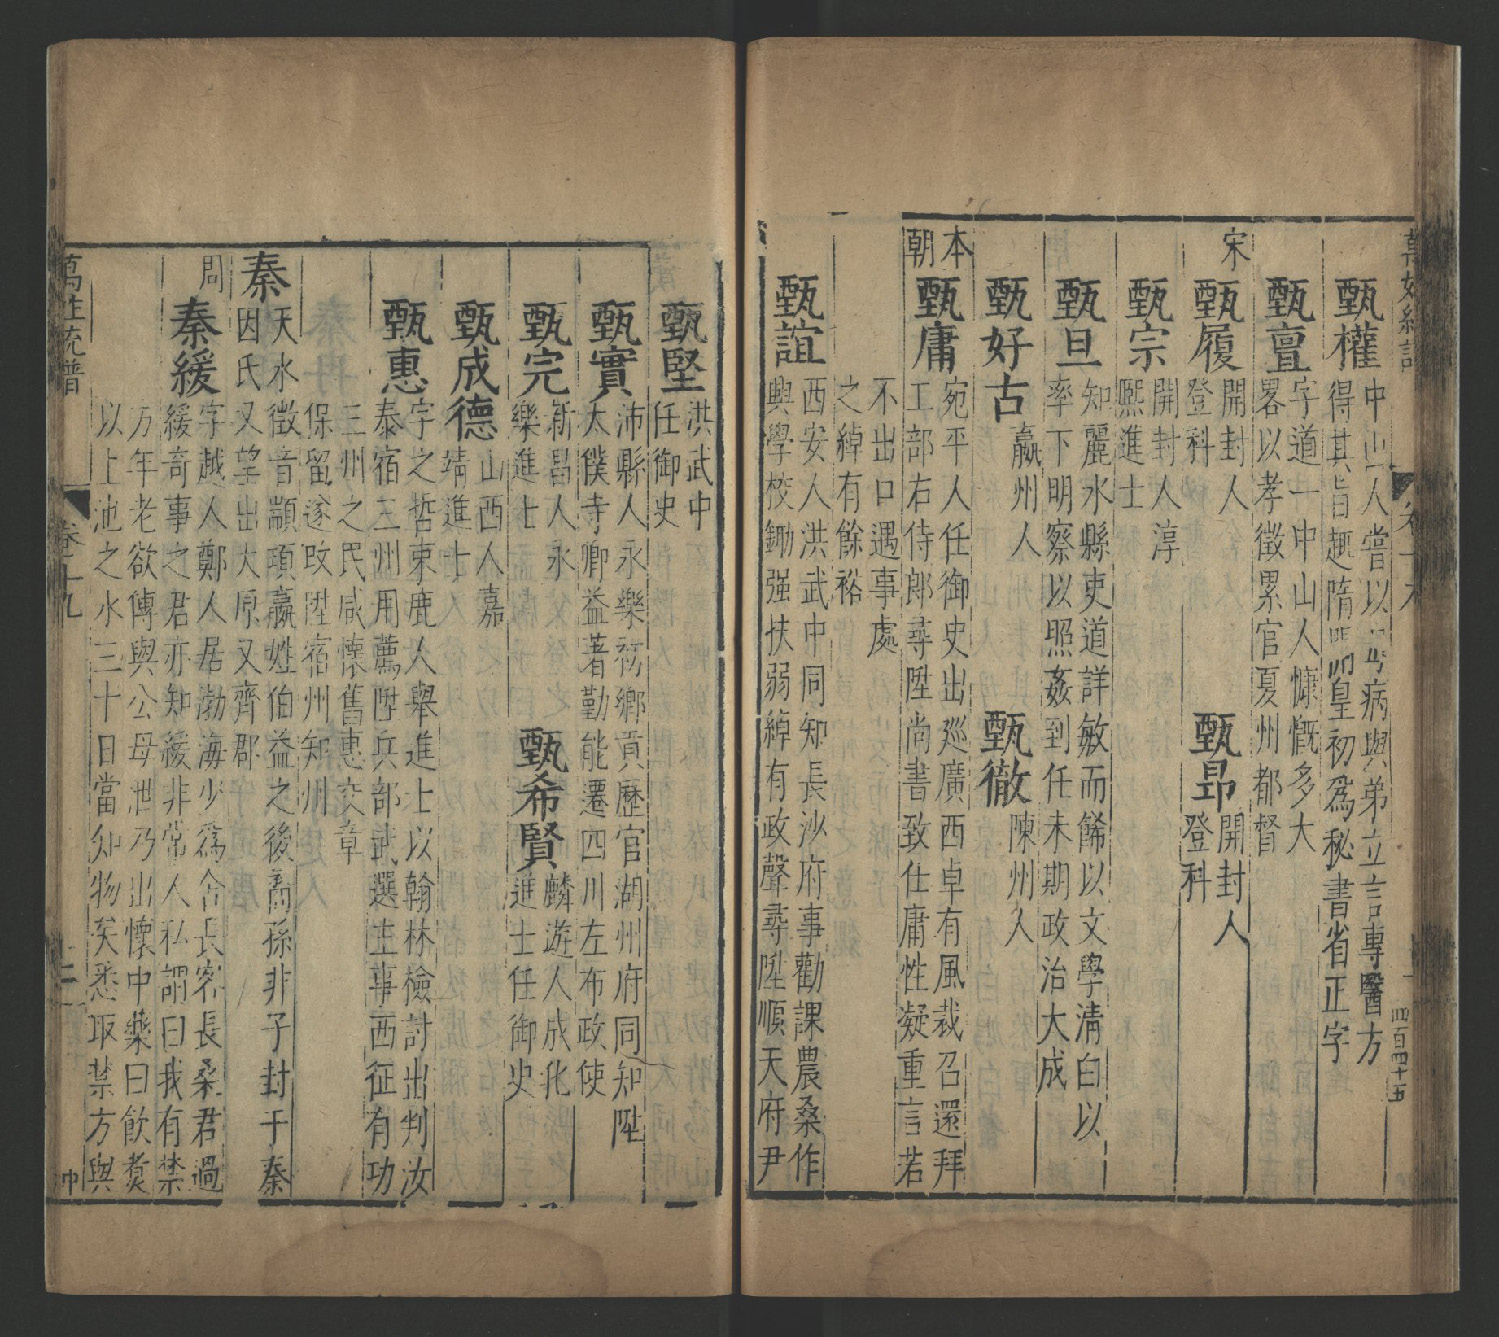 甄權
中山人嘗以母病與弟立言專醫方
得其旨趣隋開皇初爲秘書省正字
甄亶
字道一中山人慷慨多大
畧以孝徵累官夏州都督
宋
甄履
開封人
登科
甄昂
開封人
登科
甄宗
開封人淳
熈進士
甄旦
知麗水縣吏道詳敏而餙以文學清白以
率下明察以照姦到任未期政治大成
甄好古
嬴州人
甄徹
陳州人
本朝
甄庸
宛平人任御史出巡廣西卓有風裁召還拜
工部右侍郎尋陞尚書致仕庸性凝重言若
不出口遇事處
之綽有餘裕
甄誼
西安人洪武中同知長沙府事勸課農桑作
興學校鋤强扶弱綽有政聲尋陞順天府尹
甄堅
洪武中
任御史
甄實
沛縣人永樂初鄉貢歷官湖州府同知陞
太僕寺卿益著勤能遷四川左布政使
甄完
新昌人永
樂進士
甄希賢
麟遊人成化
進士任御史
甄成德
山西人嘉
靖進士
甄惠
字之哲束鹿人舉進士以翰林檢討出判汝
泰宿三州用薦陞兵部武選主事西征有功
三州之民咸懷舊惠交章
保留遂攺陞宿州知州
秦
天水徵音顓頊嬴姓伯益之後裔孫非子封于秦
因氏又望出太原又齊郡
周
秦緩
字越人鄭人居渤海少爲舍長客長桑君過
緩奇事之君亦知緩非常人私謂曰我有禁
方年老欲傳與公母泄乃出懷中藥曰飲煑
以上池之水三十日當知物矣悉取禁方與
萬姓統譜
卷十九
四百四十五